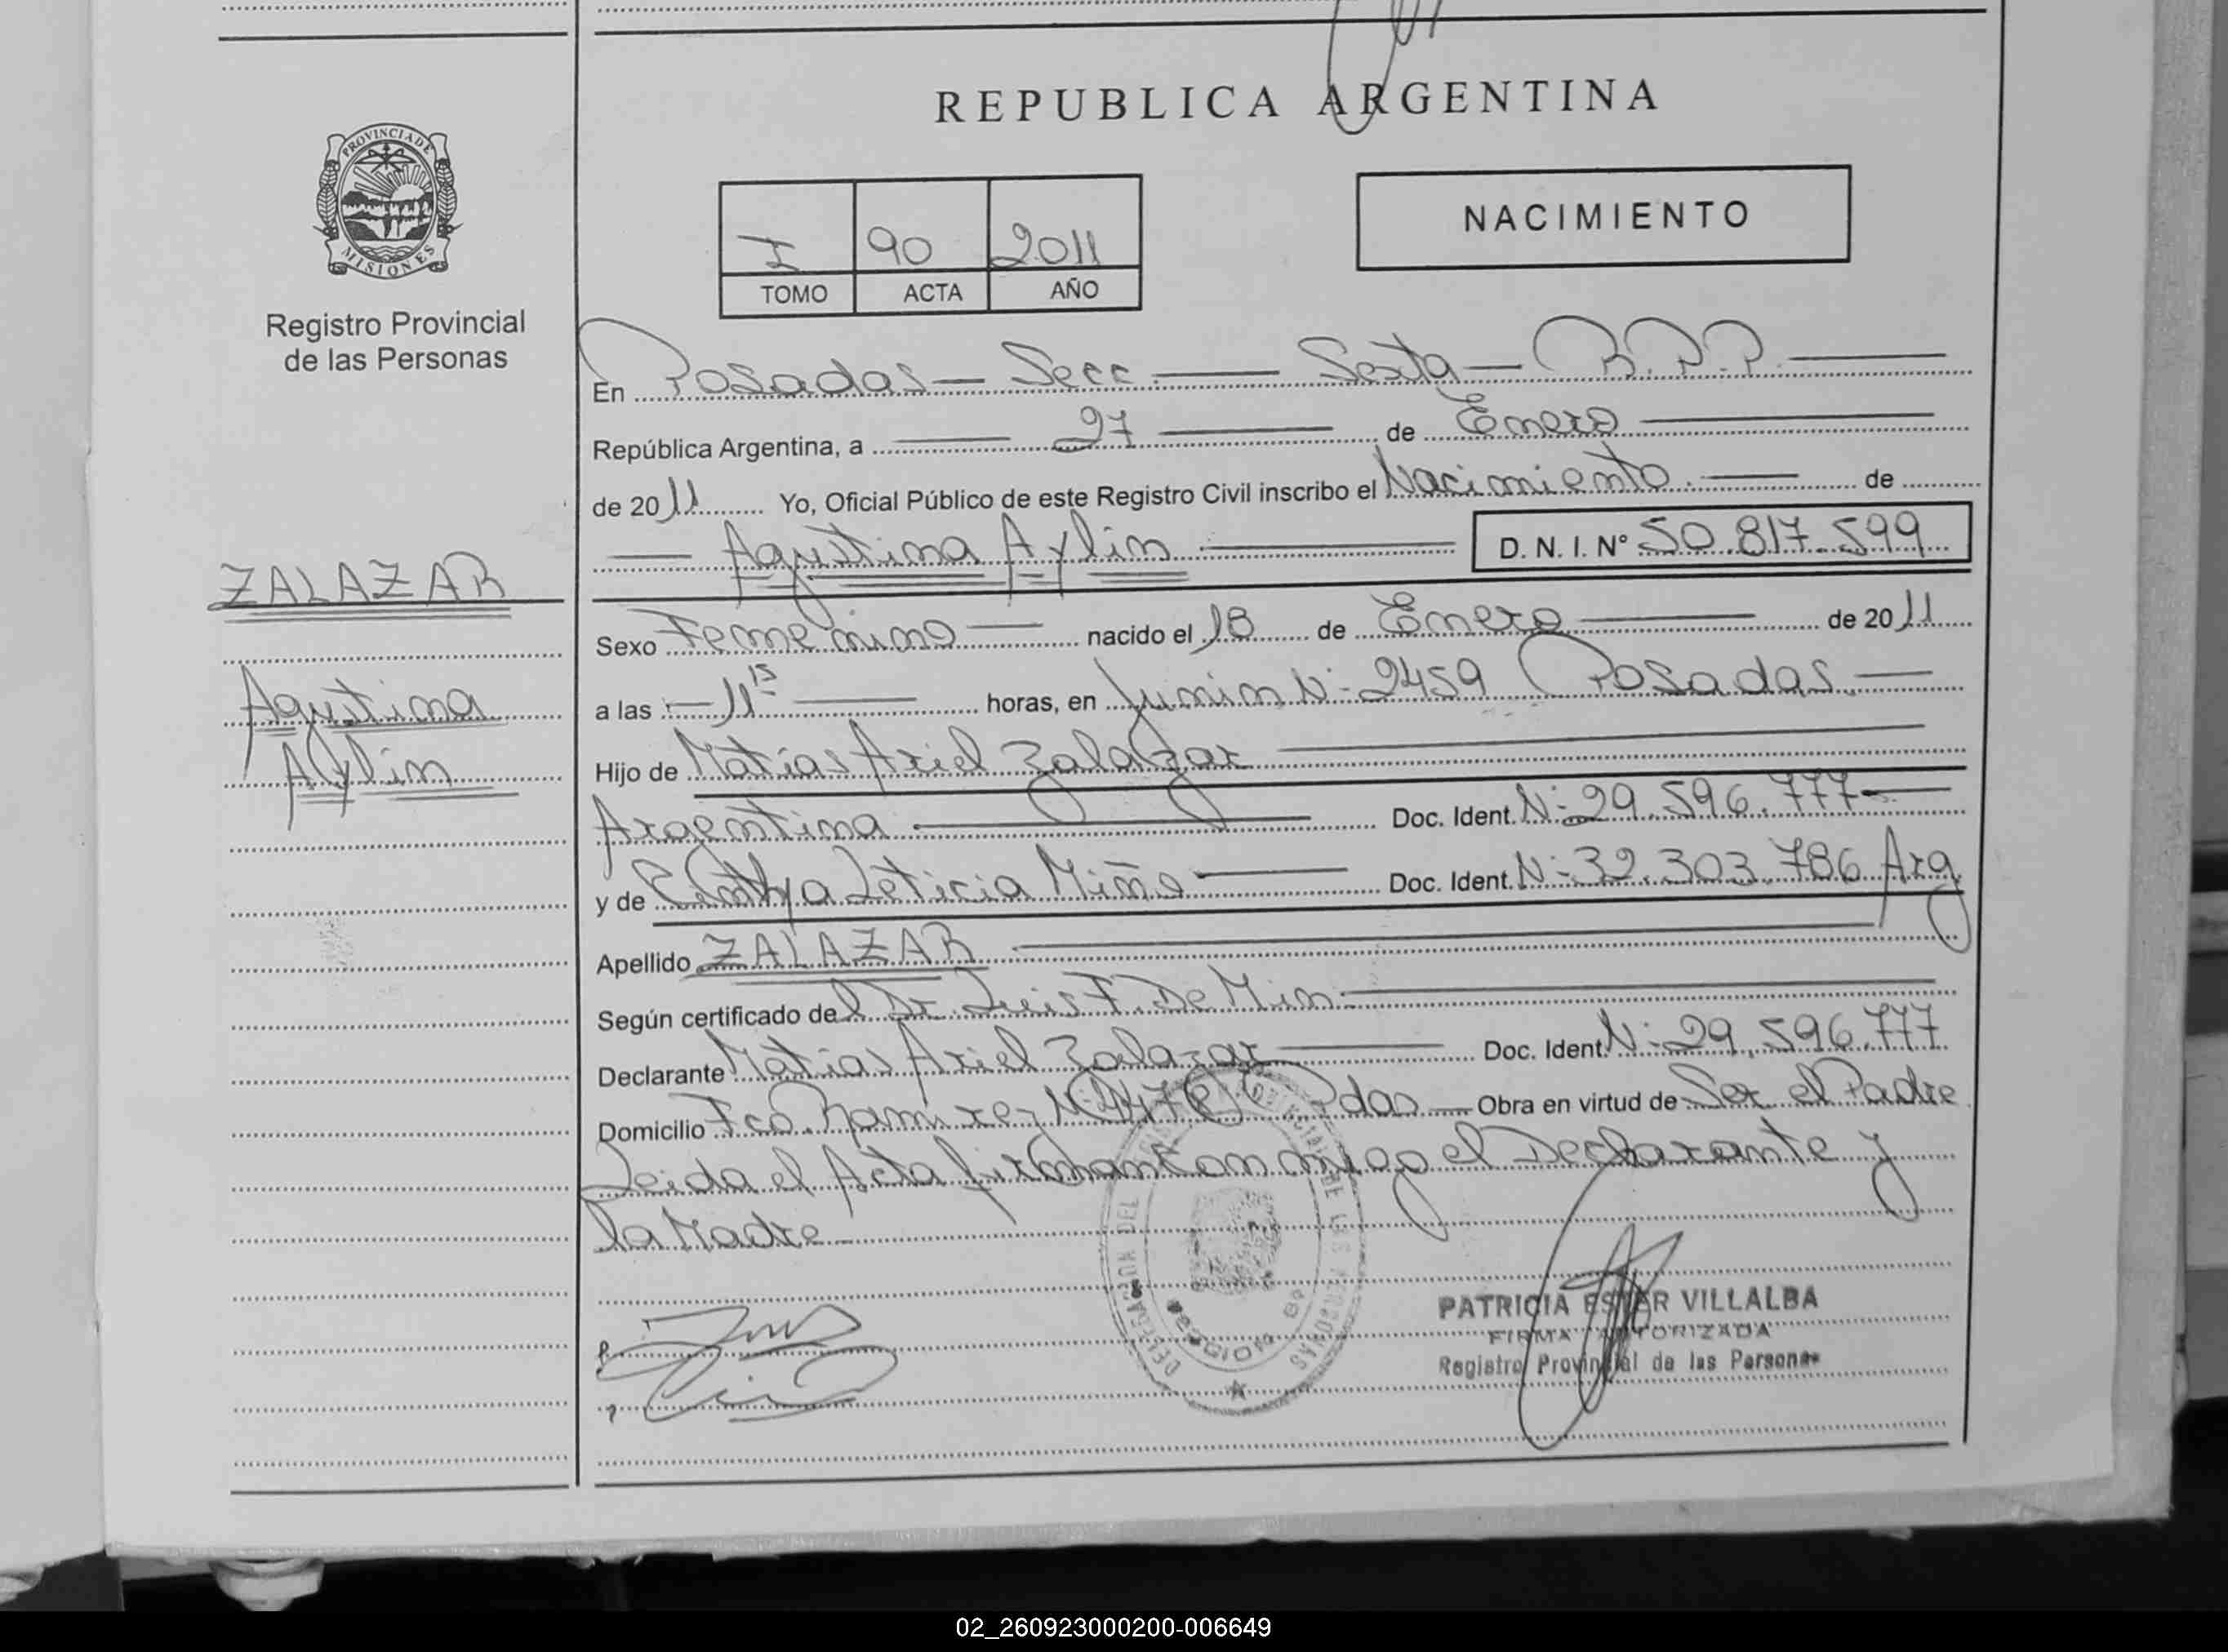 REPUBLICA ARGENTINA
PROVINCIA DE
MISIONES
Registro Provincial
de las Personas
I 90 2011
TOMO ACTA AÑO
NACIMIENTO
En Posadas - Secc. Sexta - R.P.P.
República Argentina, a 27 de Enero
de 2011 Yo, Oficial Público de este Registro Civil inscribo el Nacimiento. de
Agustina Aylin D. N. I. Nº 50.817.599
ZALAZAR
Agustina
Aylin
Sexo Femenino nacido el 18 de Enero de 2011
a las 11 15 horas, en Junin Nº 2459 Posadas.
Hijo de Matias Ariel Zalazar
Argentina Doc. Ident. Nº 29.596.777
y de Cinthya Leticia Miño Doc. Ident. Nº 32.303.786 Arg.
Apellido ZALAZAR
Según certificado del Dr. Luis F. De Min.
Declarante Matias Ariel Zalazar Doc. Ident. Nº 29.596.777
Domicilio Fco. Ramirez Pdas Obra en virtud de Ser el Padre
Leida el Acta firman Conmigo el Declarante y
la Madre
PATRICIA ESTER VILLALBA
FIRMA AUTORIZADA
Registro Provincial de las Personas
02_260923000200-006649